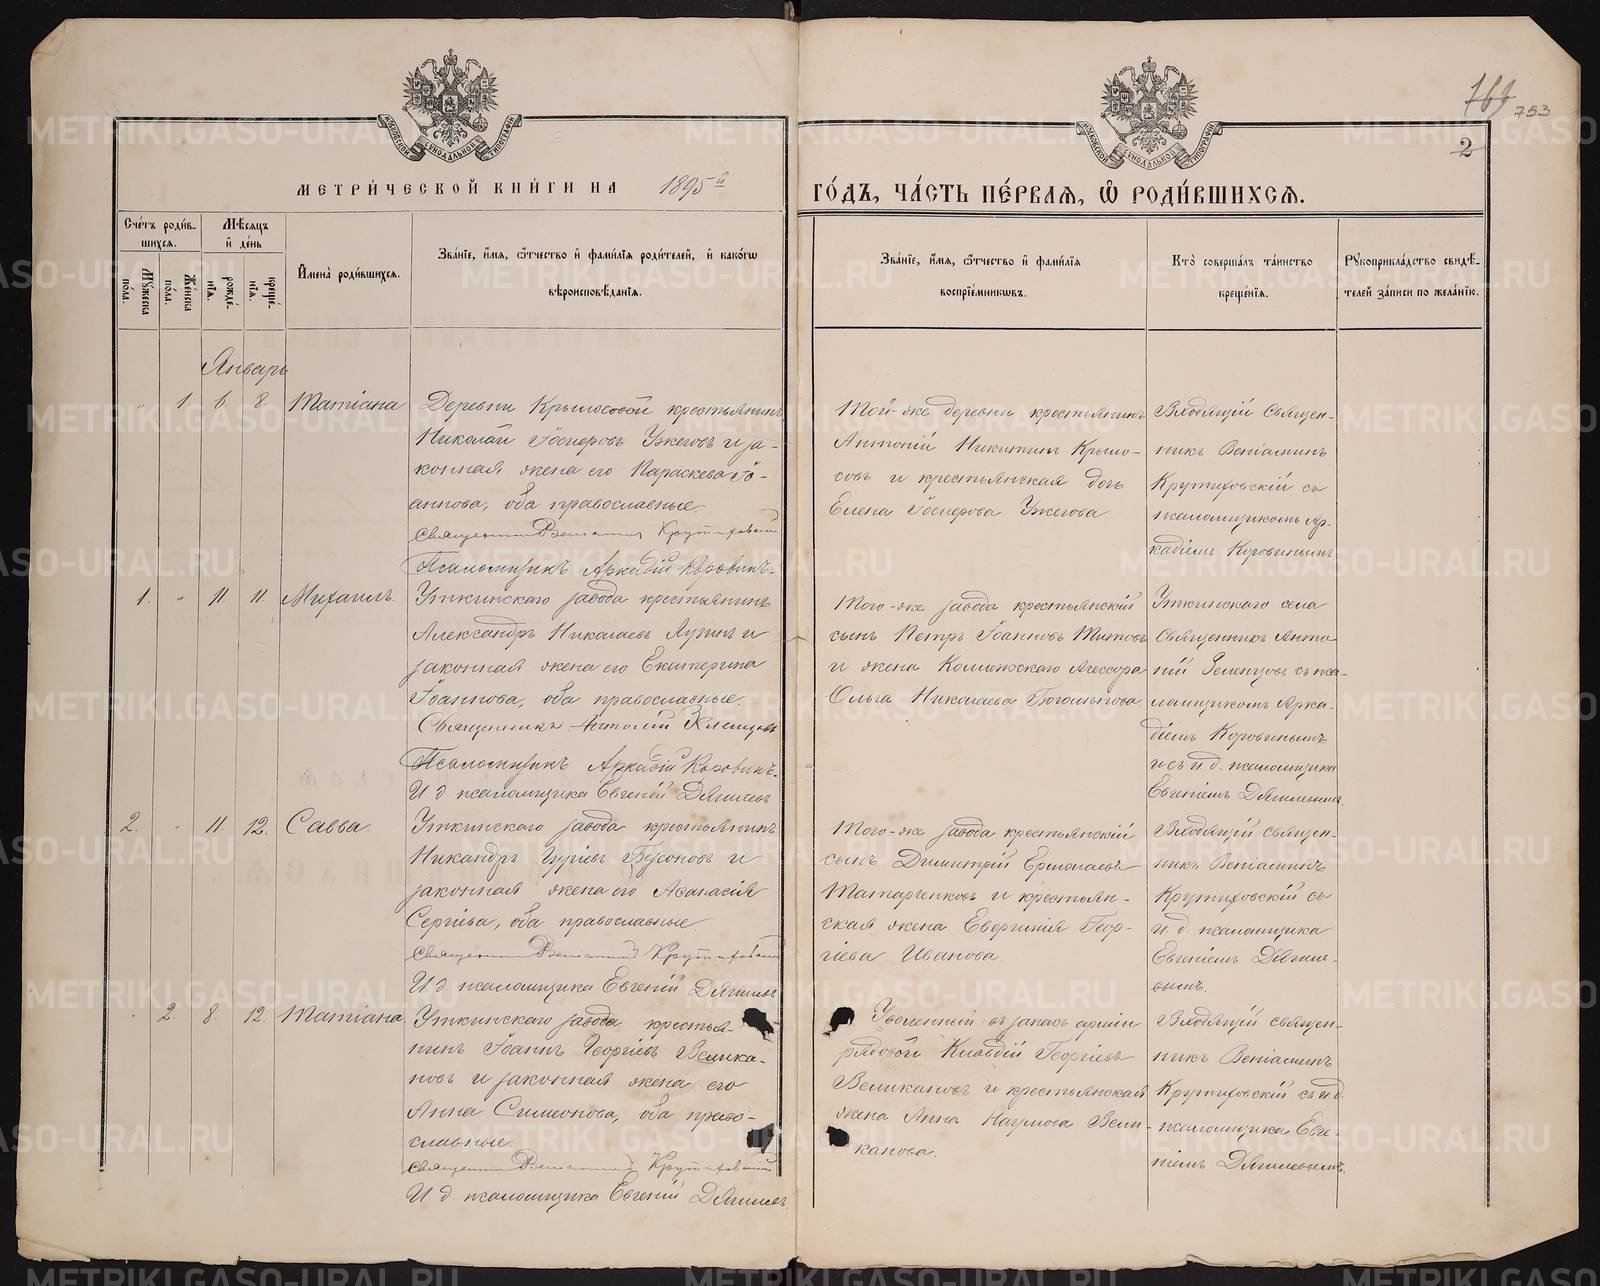 769
753
2
МЕТРИ́ЧЕСКОЙ КНИ́ГИ НА 1895 й
ГО́ДЪ, ЧА́СТЬ ПЕ́РВАЯ, Ѽ РОДИ́ВШИХСЯ.
Сче́тъ роди́в-
шихся.
Мꙋжеска по́ла.
Же́нска по́ла.
Мѣ́сяцъ
и҆ де́нь
рожде́-
нїя.
креще́-
нїя.
И҆мена̀ роди́вшихся.
Зва́нїе, и҆́мя, ѻ҆́тчество и҆ фами́лїя роди́телей, и҆ како́гѡ
вѣроисповѣ́данїя.
Зва́нїе, и҆́мя, ѻ҆́тчество и҆ фами́лїя
воспрїе́мникѡвъ.
Кто̀ соверша́лъ та́инство
креще́нїя.
Рꙋкоприкла́дство свидѣ́-
телей за́писи по жела́нїю.
Январь
" 1 6 8 Татіана
Деревни Крылосовой крестьянинъ
Николай Іосифовъ Ужеговъ и за-
конная жена его Параскева Іо-
аннова, оба православные.
Священникъ Веніаминъ Крутиховскій
Псаломщикъ Аркадій Коровинъ.
Той-же деревни крестьянинъ
Антоній Никитинъ Крыло-
совъ и крестьянская дочь
Елена Іосифова Ужегова
Входящій Священ-
никъ Веніаминъ
Крутиховскій съ
псаломщикомъ Ар-
кадіемъ Коровинымъ
1. " 11. 11. Михаилъ.
Уткинскаго завода крестьянинъ
Александръ Николаевъ Лузинъ и
законная жена его Екатерина
Іоаннова, оба православные.
Священникъ Антоній
Псаломщикъ Аркадій Коровинъ.
И. д. псаломщика Евгеній Дягилевъ
Того-же завода крестьянскій
сынъ Петръ Іоанновъ Титовъ
и жена Коллежскаго Ассесора
Ольга Николаева
Уткинскаго села
Священникъ Анто-
ній съ пса-
ломщикомъ Арка-
діемъ Коровинымъ
и съ и. д. псаломщика
Евгеніемъ Дягилевымъ.
2. " 11. 12. Савва.
Уткинскаго завода крестьянинъ
Никандръ Гуріевъ Бузоновъ и
законная жена его Афанасія
Сергіева, оба православные.
Священникъ Веніаминъ Крутиховскій
И. д. псаломщика Евгеній Дягилевъ
Того-же завода крестьянскій
сынъ Димитрій Ермолаевъ
Татарченковъ и крестьян-
ская жена Евфимія Геор-
гіева Иванова.
Входящій священ-
никъ Веніаминъ
Крутиховскій съ
и. д. псаломщика
Евгеніемъ Дягиле-
вымъ.
" 2. 8. 12. Татіана
Уткинскаго завода крестья-
нинъ Іоаннъ Георгіевъ Велика-
новъ и законная жена его
Анна Симеонова, оба право-
славные.
Священникъ Веніаминъ Крутиховскій
И. д. псаломщика Евгеній Дягилевъ.
Уволенный въ запасъ арміи
рядовой Клавдій Георгіевъ
Великановъ и крестьянская
жена Анна Наумова Вели-
канова.
Входящій священ-
никъ Веніаминъ
Крутиховскій съ и. д.
псаломщика Евге-
ніемъ Дягилевымъ.
METRIKI.GASO-URAL.RU